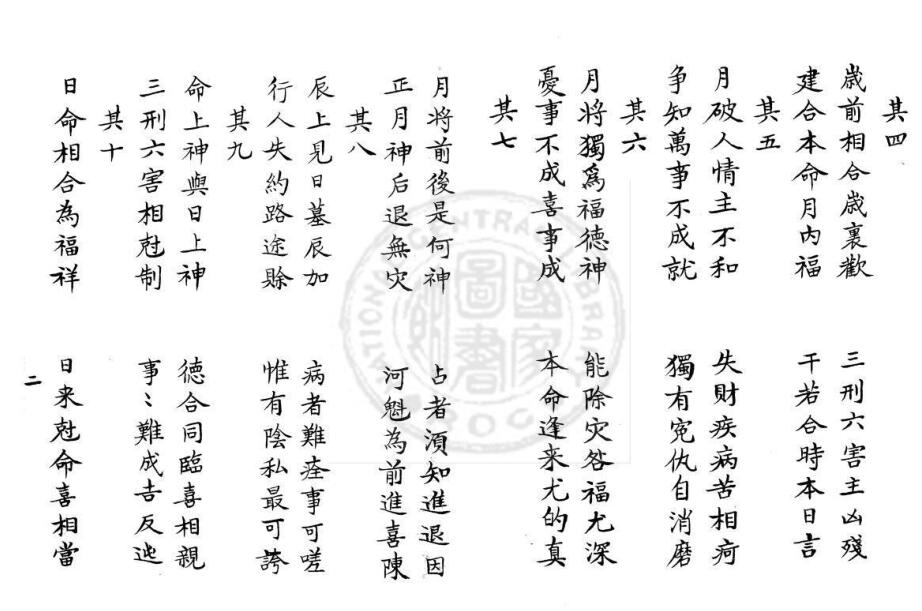 其四
歲前相合歲裏歡　三刑六害主凶殘
建合本命月內福　干若合時本日言
其五
月破人情主不和　失財疾病苦相疴
争知萬事不成就　獨有寃仇自消磨
其六
月將獨爲福德神　能除灾咎福尤深
憂事不成喜事成　本命逢来尤的真
其七
月將前後是何神　占者湏知進退因
正月神后退無灾　河魁為前進喜陳
其八
辰上見日墓辰加　病者難痊事可嗟
行人失約路途賒　惟有陰私最可誇
其九
命上神與日上神　德合同臨喜相親
三刑六害相尅制　事〻難成吉反迍
其十
日命相合為福祥　日来尅命喜相當
二
NATIONAL CENTRAL LIBRARY
R O C
國家圖書館